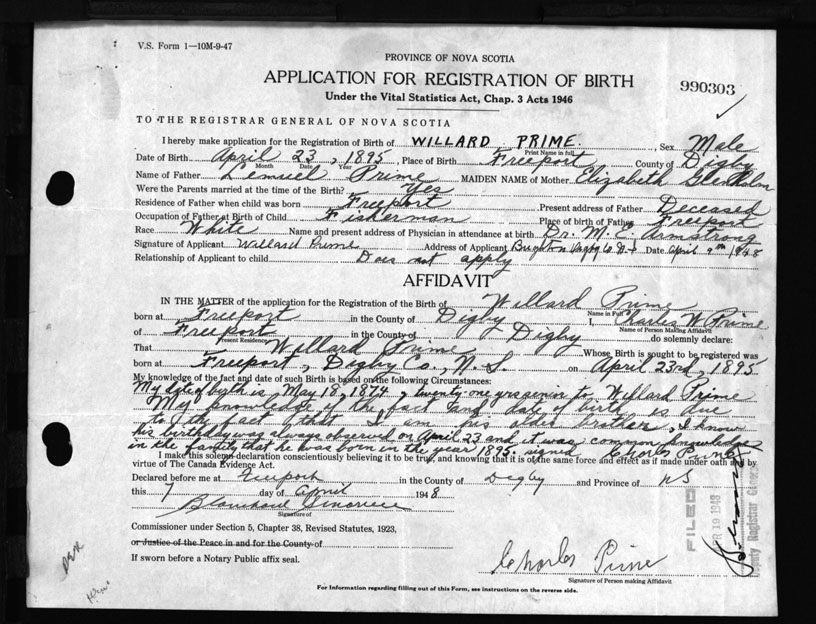 V.S. Form 1—10M-9-47
PROVINCE OF NOVA SCOTIA
APPLICATION FOR REGISTRATION OF BIRTH
990303
Under the Vital Statistics Act, Chap. 3 Acts 1946
TO THE REGISTRAR GENERAL OF NOVA SCOTIA
I hereby make application for the Registration of Birth of WILLARD PRIME, Sex Male
Print Name in full
Date of Birth April 23, 1895, Place of Birth Freeport County of Digby
Month Date Year
Name of Father Lemuel Prime MAIDEN NAME of Mother Elizabeth Glenholm
Were the Parents married at the time of the Birth? Yes
Residence of Father when child was born Freeport Present address of Father Deceased
Occupation of Father at Birth of Child Fisherman Place of birth of Father Freeport
Race White Name and present address of Physician in attendance at birth Dr. M. E. Armstrong
Signature of Applicant Willard Prime Address of Applicant Brighton Digby Co N.S. Date April 9th 1948
Relationship of Applicant to child Does not apply
AFFIDAVIT
IN THE MATTER of the application for the Registration of the Birth of Willard Prime
Name in Full
born at Freeport in the County of Digby I, Charles W Prime
Name of Person Making Affidavit
of Freeport in the County of Digby do solemnly declare:
Present Residence
That Willard Prime Whose Birth is sought to be registered was
born at Freeport, Digby Co., N.S. on April 23rd, 1895
My knowledge of the fact and date of such Birth is based on the following Circumstances:
My date of birth is May 18, 1874, twenty-one yrs senior to Willard Prime
My knowledge of the fact and date of birth is due
to the fact that I am his older brother, I know
his birthday was always observed on April 23 and it was common knowledge
in the family that he was born in the year 1895. signed Charles Prime
I make this solemn declaration conscientiously believing it to be true, and knowing that it is of the same force and effect as if made under oath and by
virtue of The Canada Evidence Act.
Declared before me at Freeport in the County of Digby and Province of NS
this 7 day of April 1948
Blanchard
Signature of
Commissioner under Section 5, Chapter 38, Revised Statutes, 1923,
or Justice of the Peace in and for the County of
If sworn before a Notary Public affix seal.
Charles Prime
Signature of Person making Affidavit
For Information regarding filling out of this Form, see instructions on the reverse side.
FILED
APR 19 1948
Deputy Registrar General